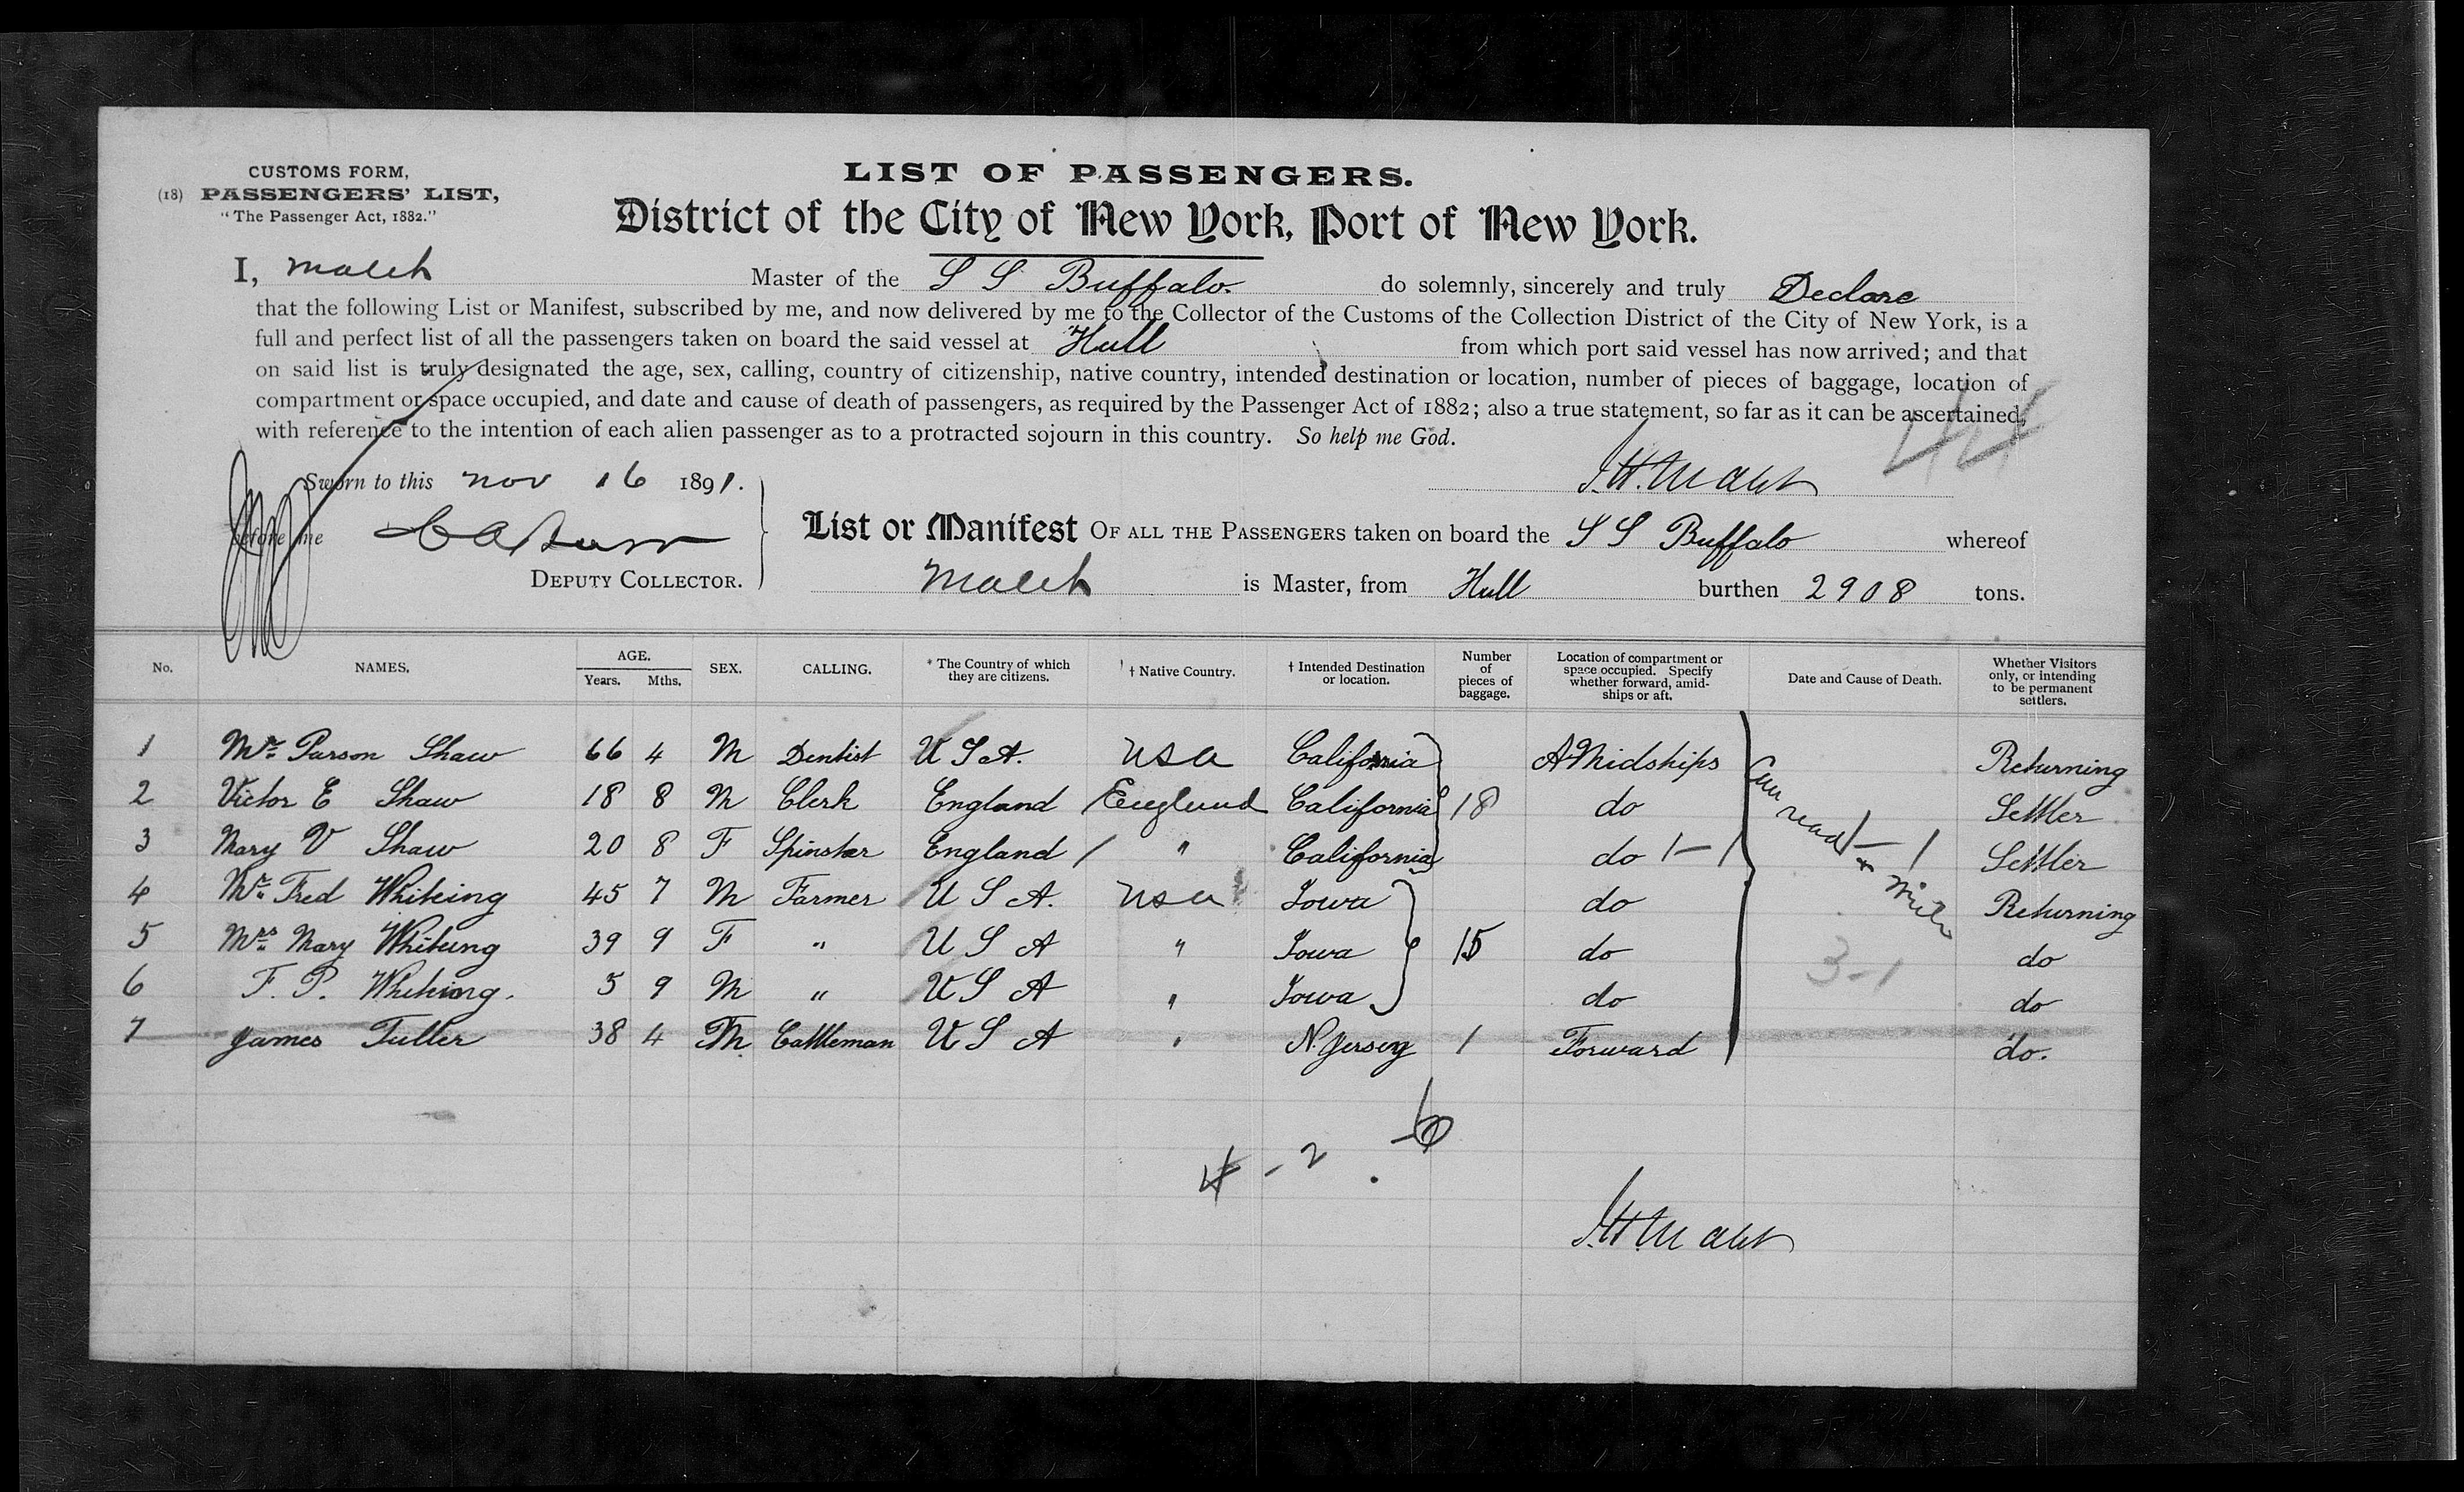 CUSTOMS FORM,
(18) PASSENGERS' LIST,
"The Passenger Act, 1882."
LIST OF PASSENGERS.
District of the City of New York, Port of New York.
I, Malet Master of the S S Buffalo. do solemnly, sincerely and truly Declare
that the following List or Manifest, subscribed by me, and now delivered by me to the Collector of the Customs of the Collection District of the City of New York, is a
full and perfect list of all the passengers taken on board the said vessel at Hull from which port said vessel has now arrived; and that
on said list is truly designated the age, sex, calling, country of citizenship, native country, intended destination or location, number of pieces of baggage, location of
compartment or space occupied, and date and cause of death of passengers, as required by the Passenger Act of 1882; also a true statement, so far as it can be ascertained,
with reference to the intention of each alien passenger as to a protracted sojourn in this country. So help me God.
Sworn to this Nov 16 1891.
J. H. Malet
before me
DEPUTY COLLECTOR.
List or Manifest OF ALL THE PASSENGERS taken on board the S S Buffalo whereof
Malet is Master, from Hull burthen 2908 tons.
No. NAMES. AGE. Years. Mths. SEX. CALLING. * The Country of which they are citizens. † Native Country. † Intended Destination or location. Number of pieces of baggage. Location of compartment or space occupied. Specify whether forward, amidships or aft. Date and Cause of Death. Whether Visitors only, or intending to be permanent settlers.
1 Mr. Parson Shaw 66 4 M Dentist U S A. USA California AMidships Returning
2 Victor E Shaw 18 8 M Clerk England England California 18 do Settler
3 Mary V Shaw 20 8 F Spinster England / " California do 1-1 Settler
4 Mr. Fred Whiteing 45 7 M Farmer U S A. USA Iowa do Returning
5 Mrs. Mary Whiteing 39 9 F " U S A " Iowa 15 do do
6 F. P. Whiteing. 5 9 M " U S A " Iowa do do
7 James Fuller 38 4 M. Cattleman U S A " N. Jersey 1 Forward do.
Can read & write
1-1
3-1
4-2
6
J. H. Malet